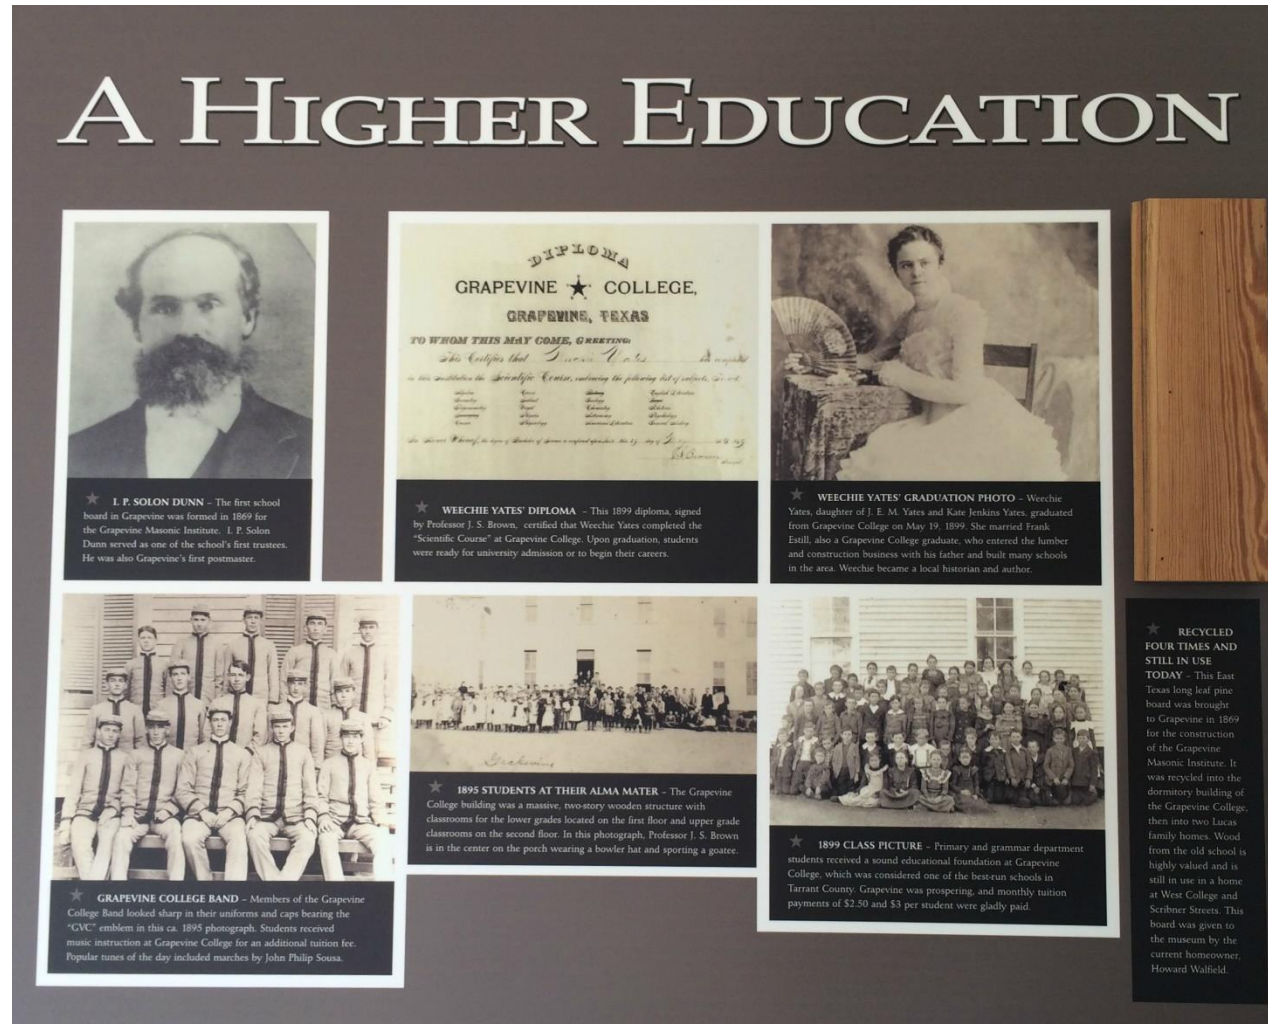 A HIGHER EDUCATION
I. P. SOLON DUNN – The first school
board in Grapevine was formed in 1869 for
the Grapevine Masonic Institute. I. P. Solon
Dunn served as one of the school's first trustees.
He was also Grapevine's first postmaster.
DIPLOMA
GRAPEVINE COLLEGE,
GRAPEVINE, TEXAS
TO WHOM THIS MAY COME, GREETING:
This Certifies that Yates
in this Institution the Scientific Course, embracing the following list of subjects,
WEECHIE YATES' DIPLOMA – This 1899 diploma, signed
by Professor J. S. Brown, certified that Weechie Yates completed the
"Scientific Course" at Grapevine College. Upon graduation, students
were ready for university admission or to begin their careers.
WEECHIE YATES' GRADUATION PHOTO – Weechie
Yates, daughter of J. E. M. Yates and Kate Jenkins Yates, graduated
from Grapevine College on May 19, 1899. She married Frank
Estill, also a Grapevine College graduate, who entered the lumber
and construction business with his father and built many schools
in the area. Weechie became a local historian and author.
GRAPEVINE COLLEGE BAND – Members of the Grapevine
College Band looked sharp in their uniforms and caps bearing the
"GVC" emblem in this ca. 1895 photograph. Students received
music instruction at Grapevine College for an additional tuition fee.
Popular tunes of the day included marches by John Philip Sousa.
Grapevine
1895 STUDENTS AT THEIR ALMA MATER – The Grapevine
College building was a massive, two-story wooden structure with
classrooms for the lower grades located on the first floor and upper grade
classrooms on the second floor. In this photograph, Professor J. S. Brown
is in the center on the porch wearing a bowler hat and sporting a goatee.
1899 CLASS PICTURE – Primary and grammar department
students received a sound educational foundation at Grapevine
College, which was considered one of the best-run schools in
Tarrant County. Grapevine was prospering, and monthly tuition
payments of $2.50 and $3 per student were gladly paid.
RECYCLED
FOUR TIMES AND
STILL IN USE
TODAY – This East
Texas long leaf pine
board was brought
to Grapevine in 1869
for the construction
of the Grapevine
Masonic Institute. It
was recycled into the
dormitory building of
the Grapevine College,
then into two Lucas
family homes. Wood
from the old school is
highly valued and is
still in use in a home
at West College and
Scribner Streets. This
board was given to
the museum by the
current homeowner,
Howard Walfield.